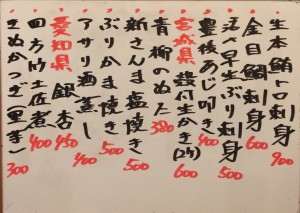 生本鮪トロ刺身 900
金目鯛刺身 600
天然早生ぶり刺身 500
豊後あじ叩き 400
宮城県 殻付生かき(2ケ) 600
青柳のぬた 380
新さんま塩焼き 500
ぶりかま焼き 500
アサリ酒蒸し 400
愛知県 銀杏 450
四方竹土佐煮 400
きぬかつぎ(里芋) 300